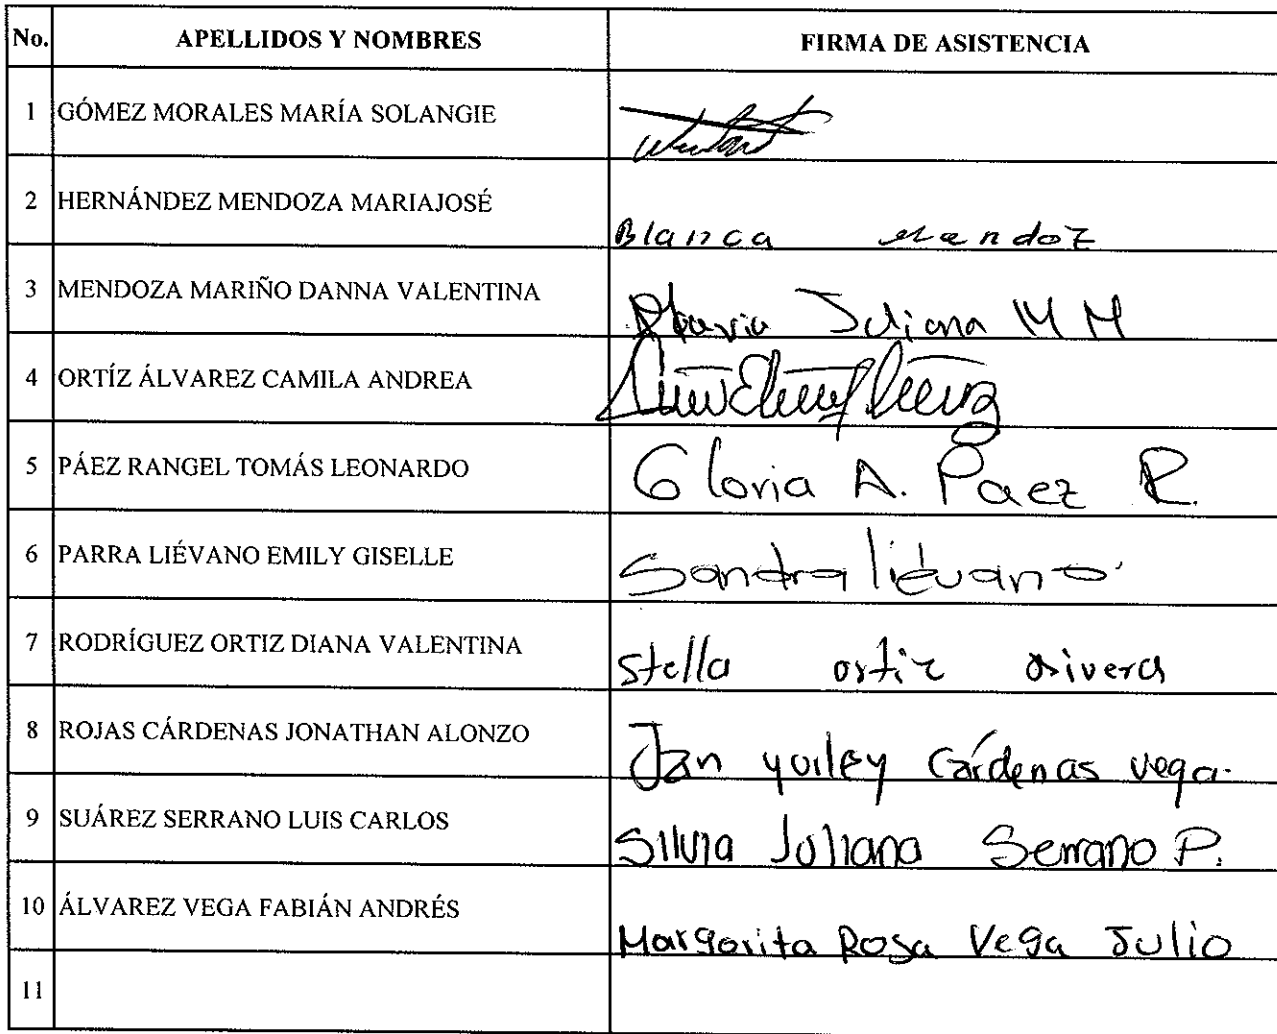 No. APELLIDOS Y NOMBRES FIRMA DE ASISTENCIA
1 GÓMEZ MORALES MARÍA SOLANGIE
2 HERNÁNDEZ MENDOZA MARIAJOSÉ Blanca Mendoz
3 MENDOZA MARIÑO DANNA VALENTINA Juliana M M
4 ORTÍZ ÁLVAREZ CAMILA ANDREA
5 PÁEZ RANGEL TOMÁS LEONARDO Gloria A. Paez R.
6 PARRA LIÉVANO EMILY GISELLE Sandra liévano
7 RODRÍGUEZ ORTIZ DIANA VALENTINA Stella ortiz Rivera
8 ROJAS CÁRDENAS JONATHAN ALONZO yurley Cárdenas vega.
9 SUÁREZ SERRANO LUIS CARLOS Silvia Juliana Serrano P.
10 ÁLVAREZ VEGA FABIÁN ANDRÉS Margarita Rosa Vega Julio
11